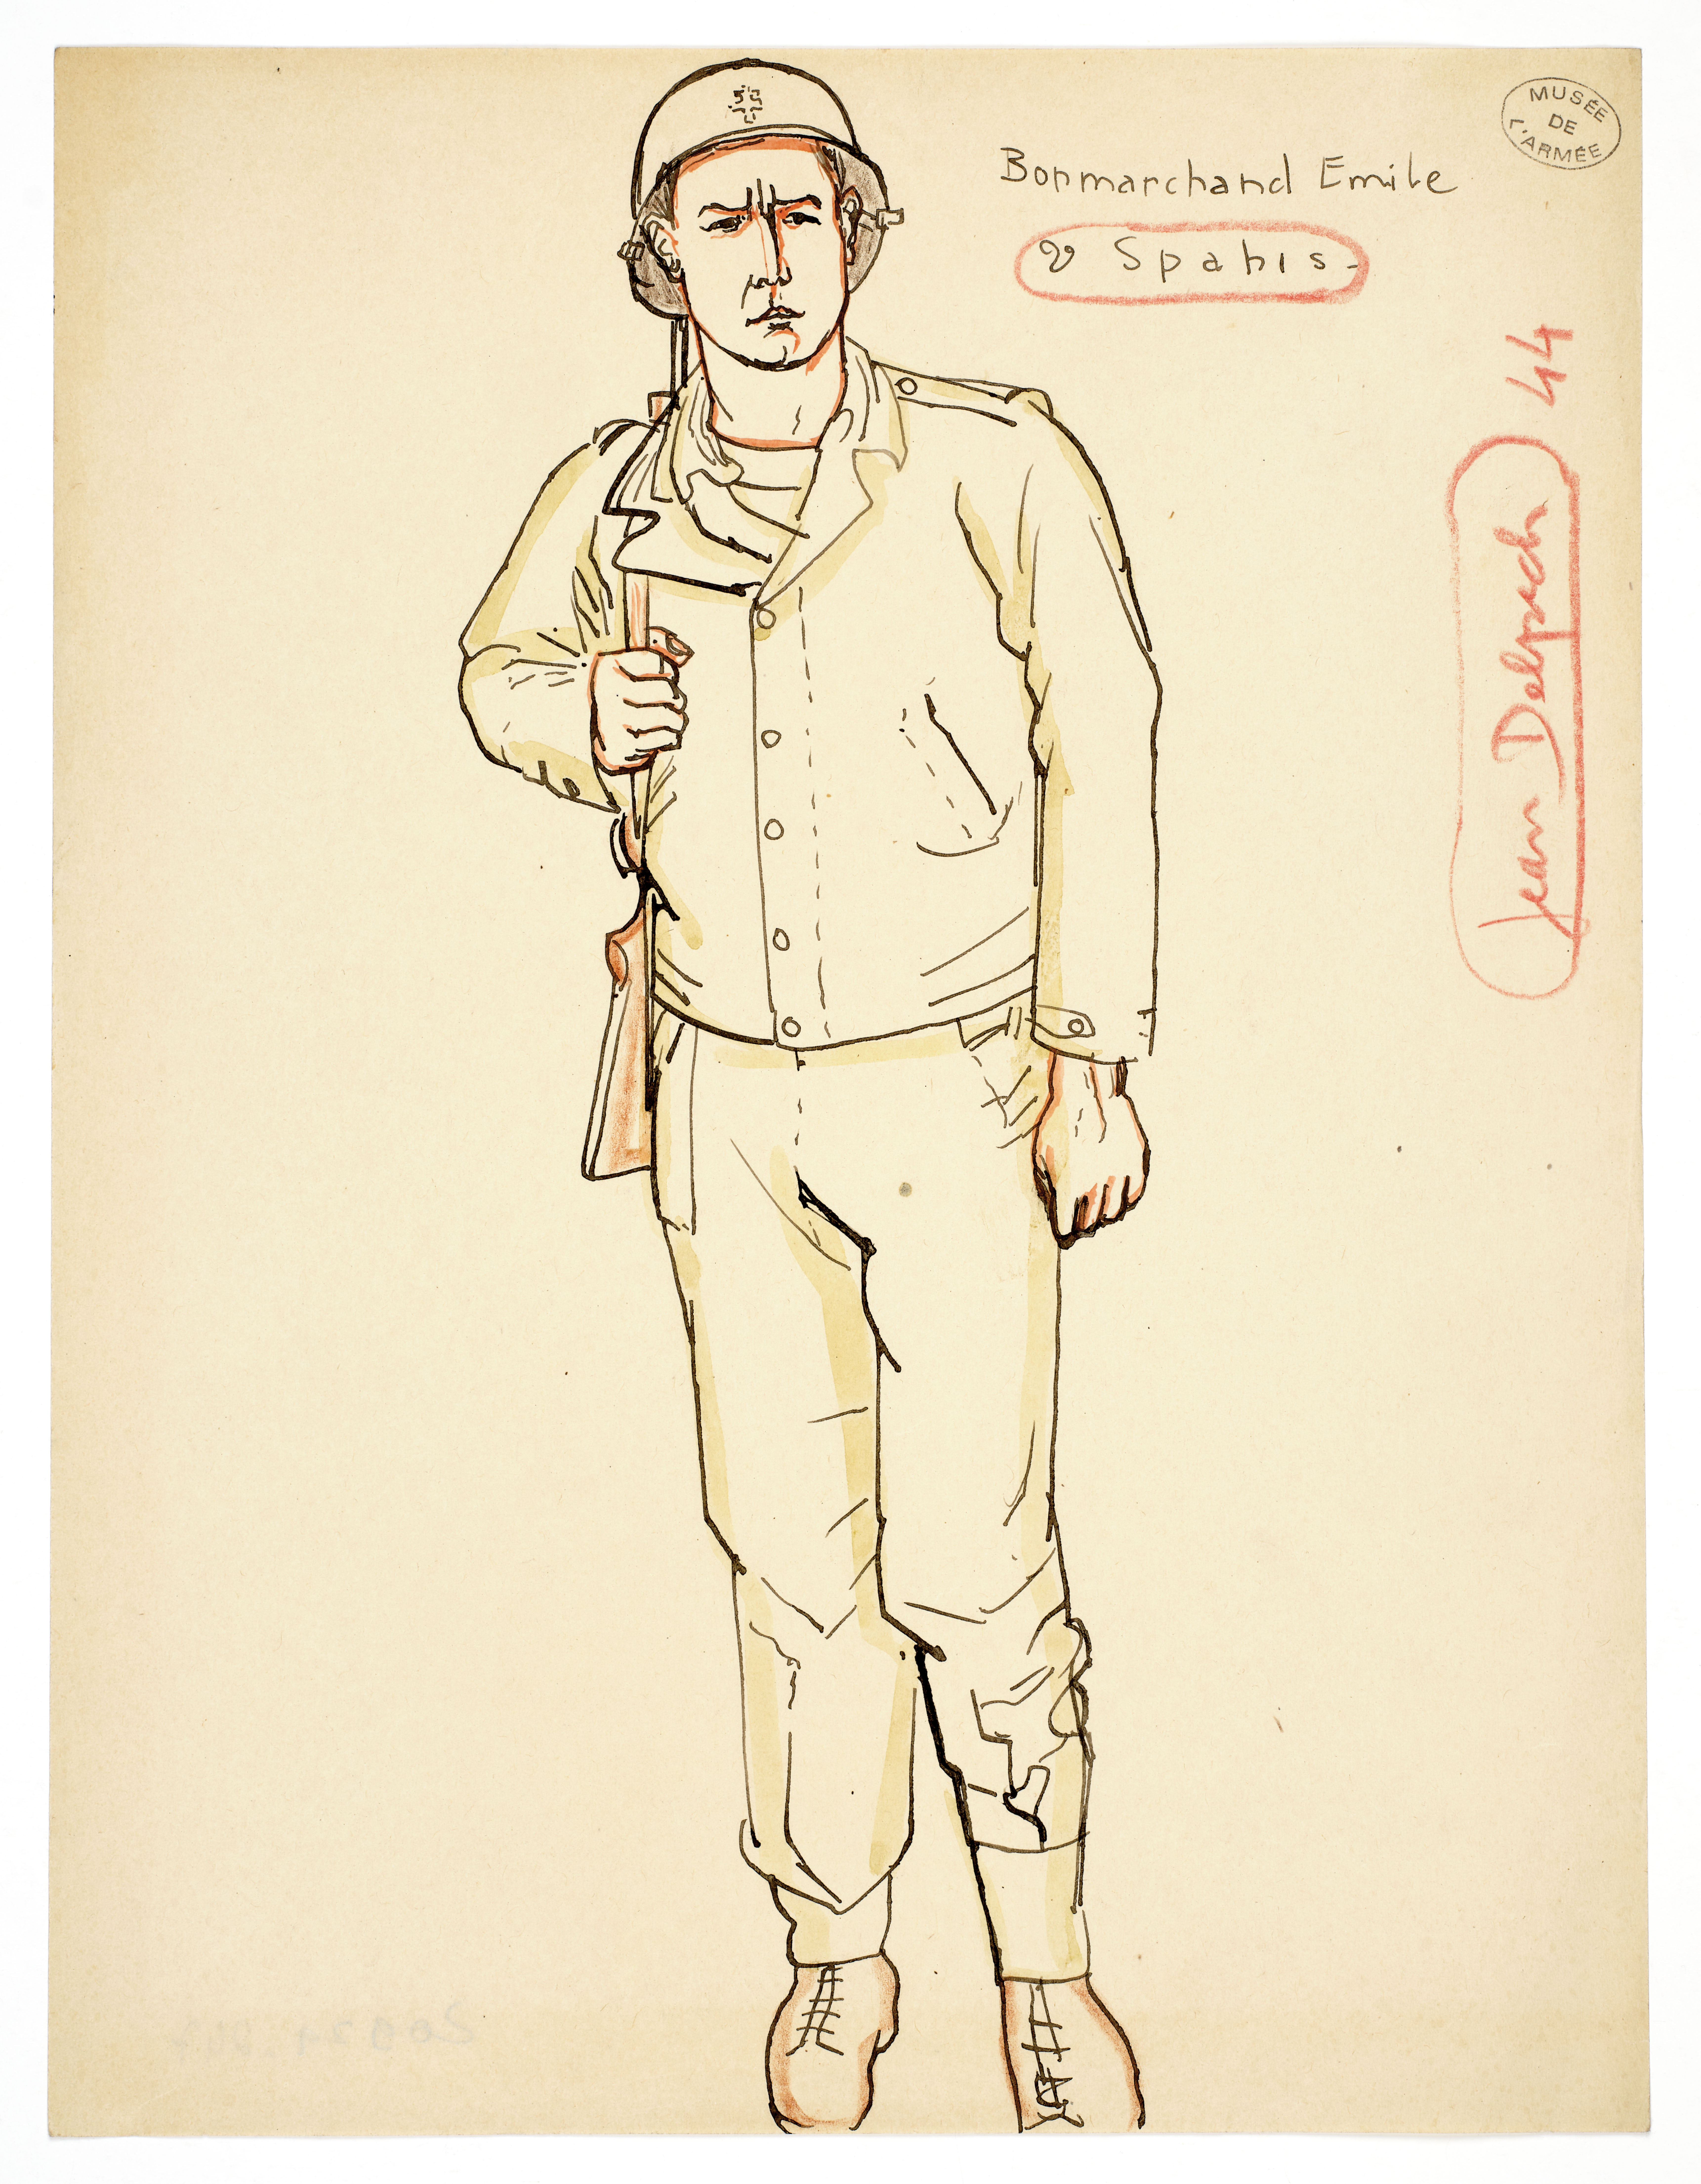 MUSÉE
DE
L'ARMÉE
Bonmarchand Emile
Spahis
Jean Delpech 44